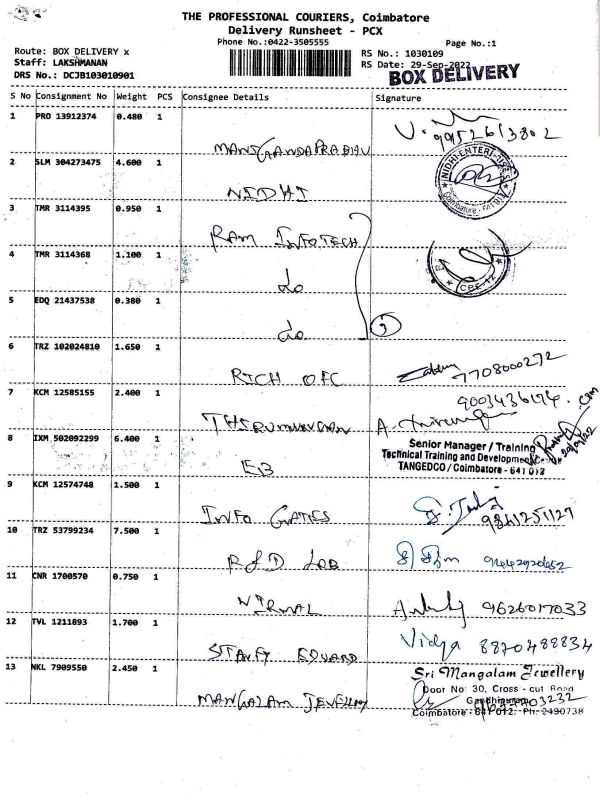 THE PROFESSIONAL COURIERS, Coimbatore
Delivery Runsheet - PCX
Phone No.:0422-3505555
Page No.:1
Route: BOX DELIVERY x
RS No.: 1030109
Staff: LAKSHMANAN
RS Date: 29-Sep-2022
DRS No.: DCJB103010901
BOX DELIVERY
S No Consignment No Weight PCS Consignee Details Signature
1 PRO 13912374 0.480 1
9952613802
2 SLM 304273475 4.600 1
NIDHI ENTERPRISES
Coimbatore
NIDHI
3 TMR 3114395 0.950 1
RAM INFOTECH
4 TMR 3114368 1.100 1
do
CBE-12
5 EDQ 21437538 0.380 1
do
3
6 TRZ 102024810 1.650 1
RICH OFC
7708000272
7 KCM 12585155 2.400 1
9003436174
8 IXM 502092299 6.400 1
Senior Manager / Training
Technical Training and Development
TANGEDCO / Coimbatore - 641 012
EB
9 KCM 12574748 1.500 1
INFO GATES
9841251127
10 TRZ 53799234 7.500 1
R&D LAB
11 CNR 1700570 0.750 1
NIRMAL
9626017033
12 TVL 1211893 1.700 1
Vidya 8870488834
13 NKL 7909550 2.450 1
Sri Mangalam Jewellery
Door No: 30, Cross - cut Road
MANGALAM JEVELLERY
Gandhipuram
Coimbatore - 641 012. Ph: 2490738